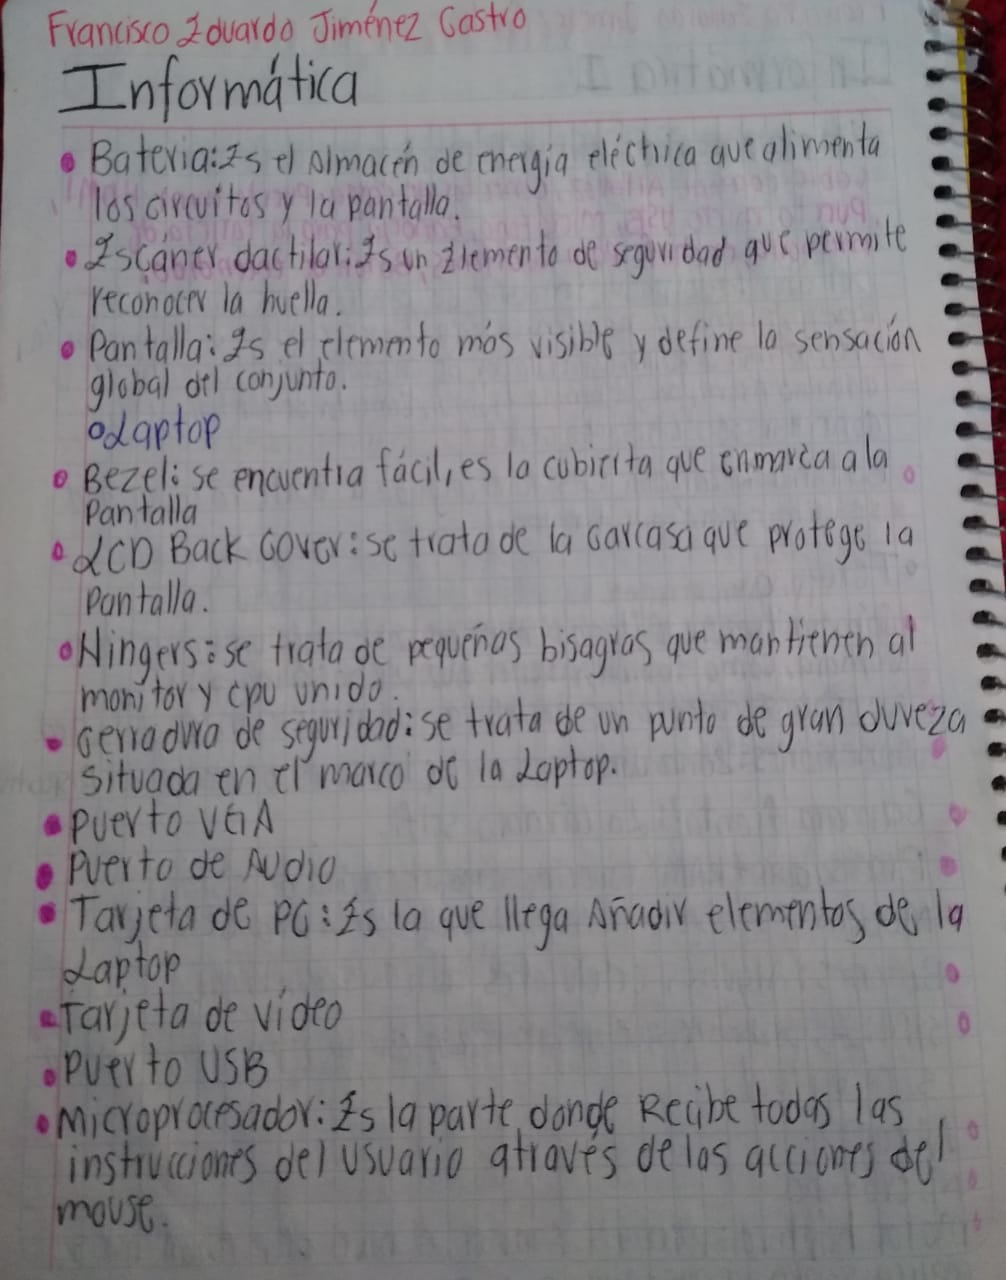 Francisco Eduardo Jiménez Castro
Informática
• Bateria: Es el almacén de energía eléctrica que alimenta
los circuitos y la pantalla.
• Escáner dactilar: Es un Elemento de seguridad que permite
reconocer la huella.
• Pantalla: Es el elemento más visible y define la sensación
global del conjunto.
o Laptop
• Bezel: se encuentra fácil, es la cubierta que enmarca a la
Pantalla
• LCD Back Cover: se trata de la carcasa que protege la
pantalla.
• Hingers: se trata de pequeñas bisagras que mantienen al
monitor y cpu unido.
• Cerradura de seguridad: se trata de un punto de gran dureza
situada en el marco de la Laptop.
• Puerto VGA
• Puerto de Audio
• Tarjeta de PC: Es la que llega Añadir elementos de la
Laptop
• Tarjeta de vídeo
• Puerto USB
• Microprocesador: Es la parte donde Recibe todas las
instrucciones del usuario através de las acciones del
mouse.